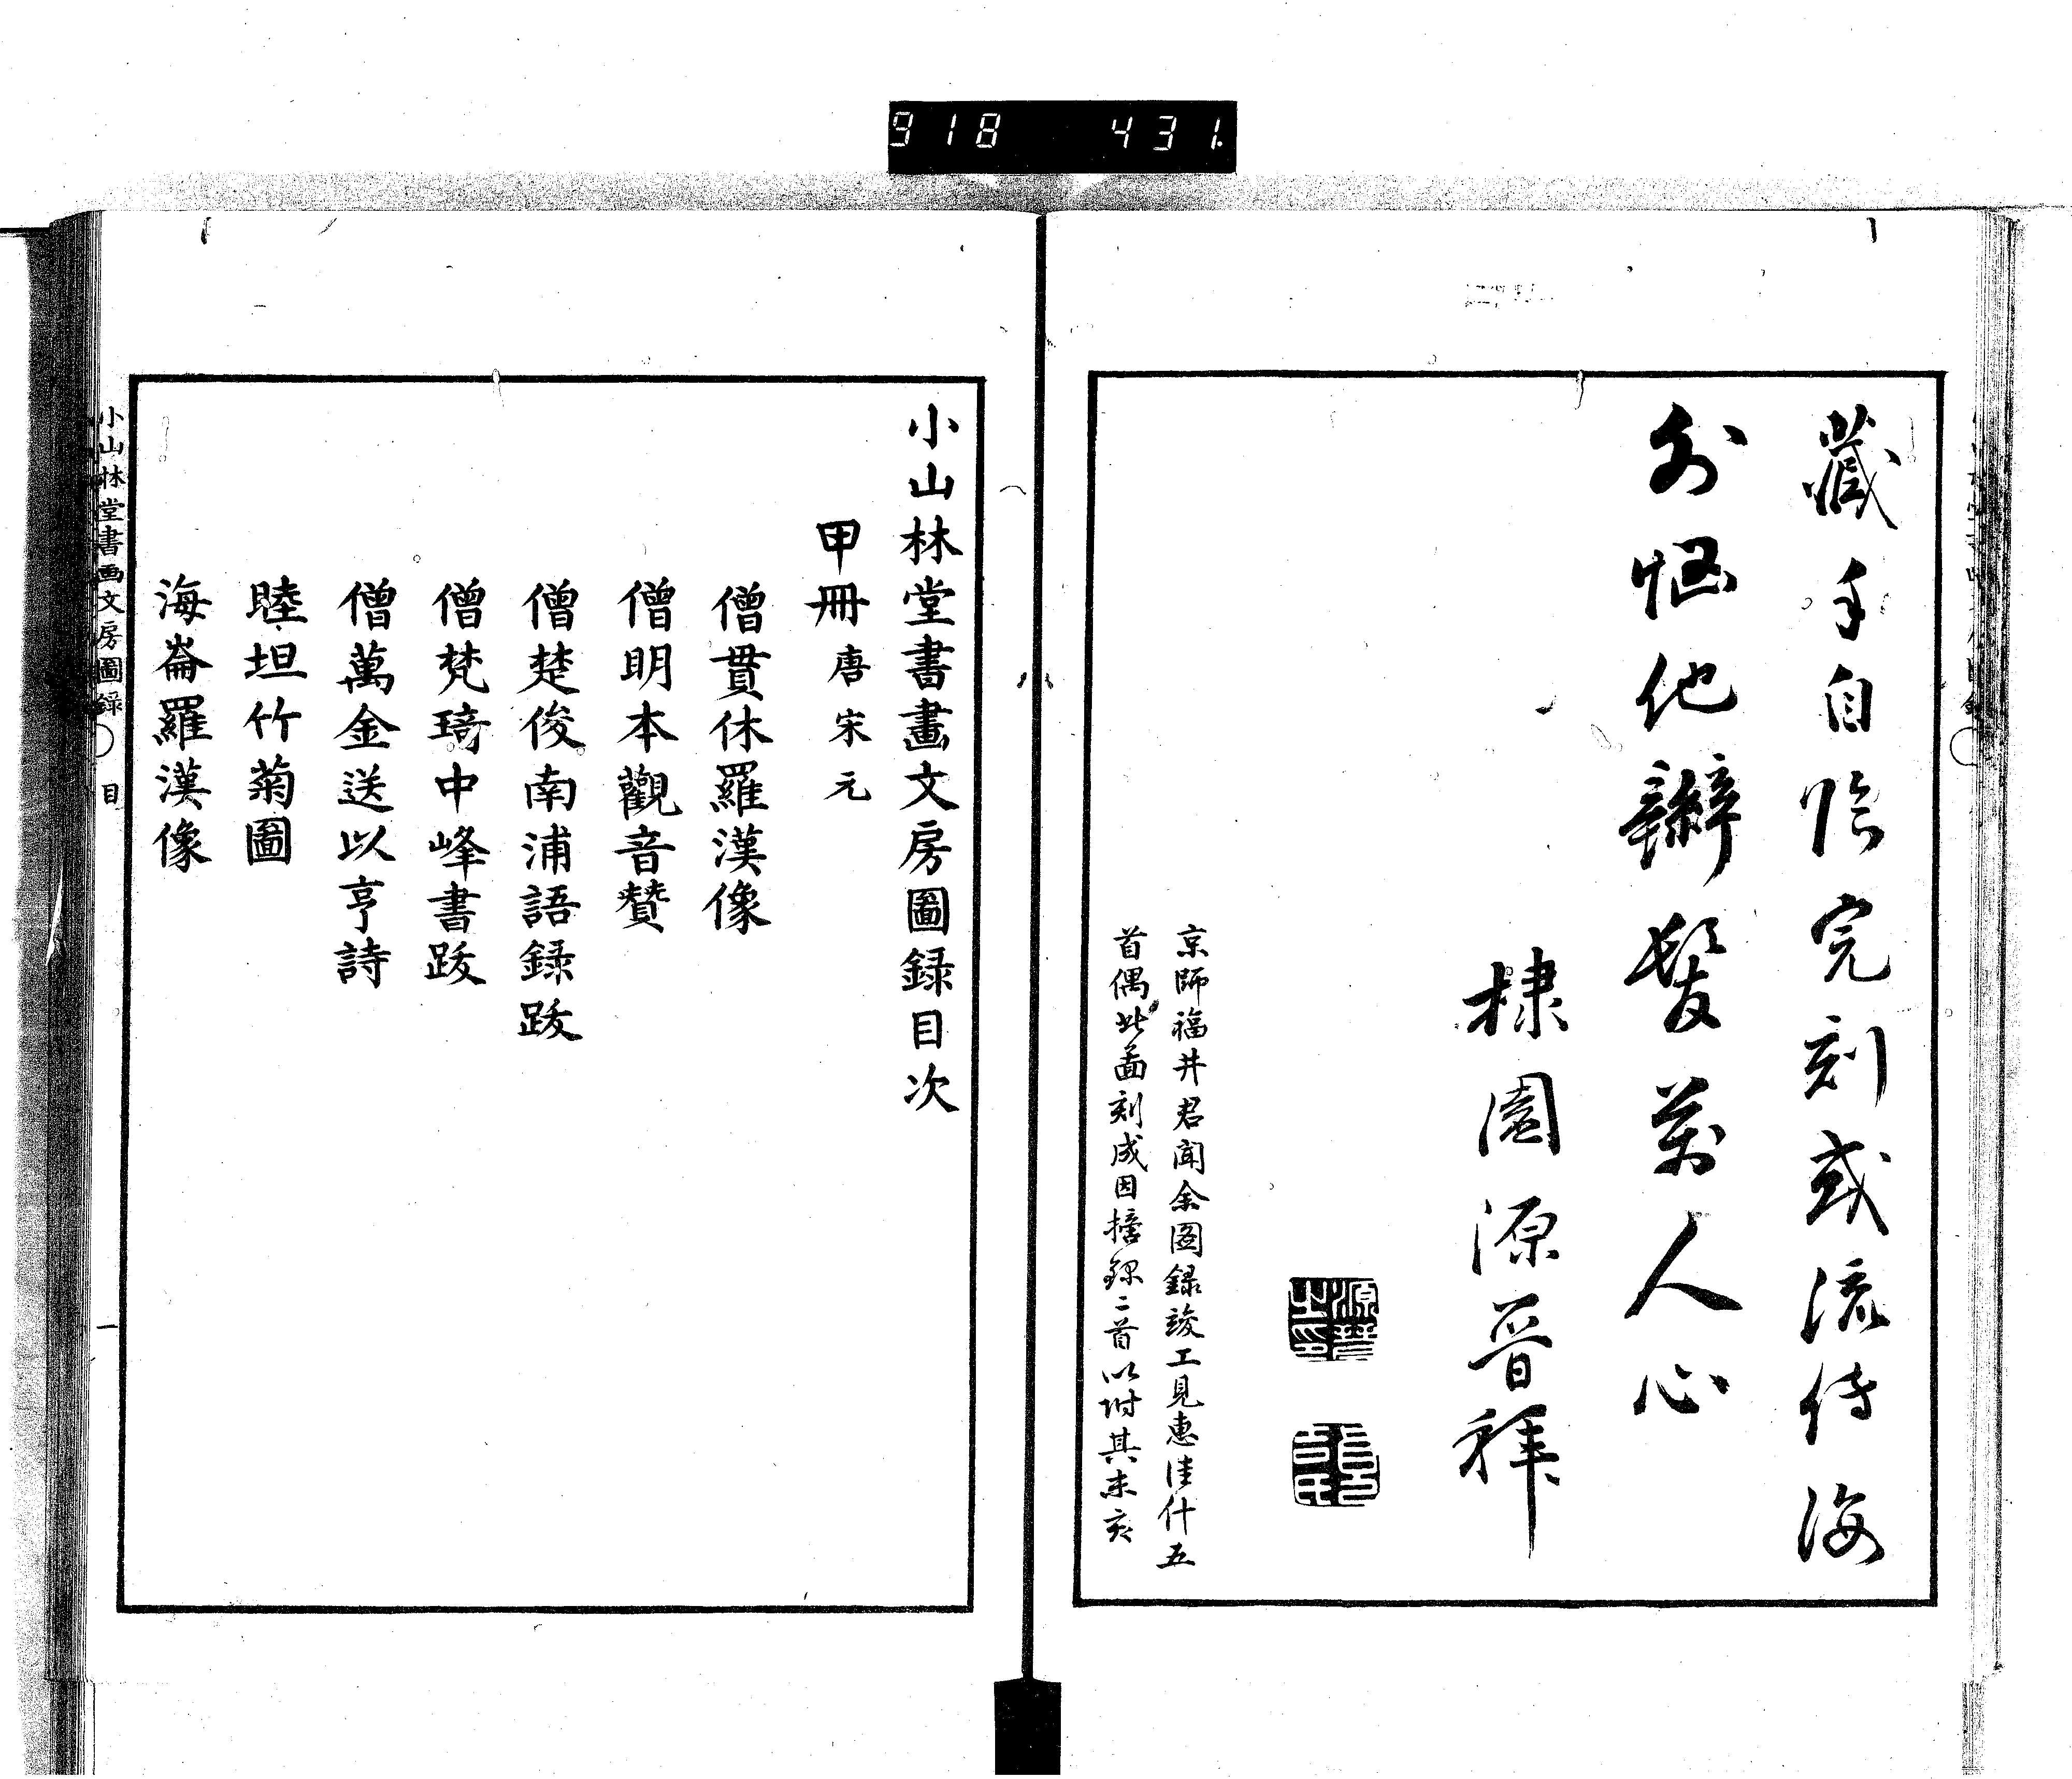 918 431.
藏手自臨完刻或流傳海
外惱他辮髮萬人心
棣園源晉拜
京師福井君聞余圖録竣工見惠佳什五
首偶此圖刻成因搭録二首以附其末亥
小山林堂書畫文房圖録目次
甲冊 唐宋元
僧貫休羅漢像
僧明本觀音贊
僧楚俊南浦語録跋
僧梵琦中峰書跋
僧萬金送以亨詩
睦坦竹菊圖
海崙羅漢像
小山林堂書画文房圖録〇 目 一